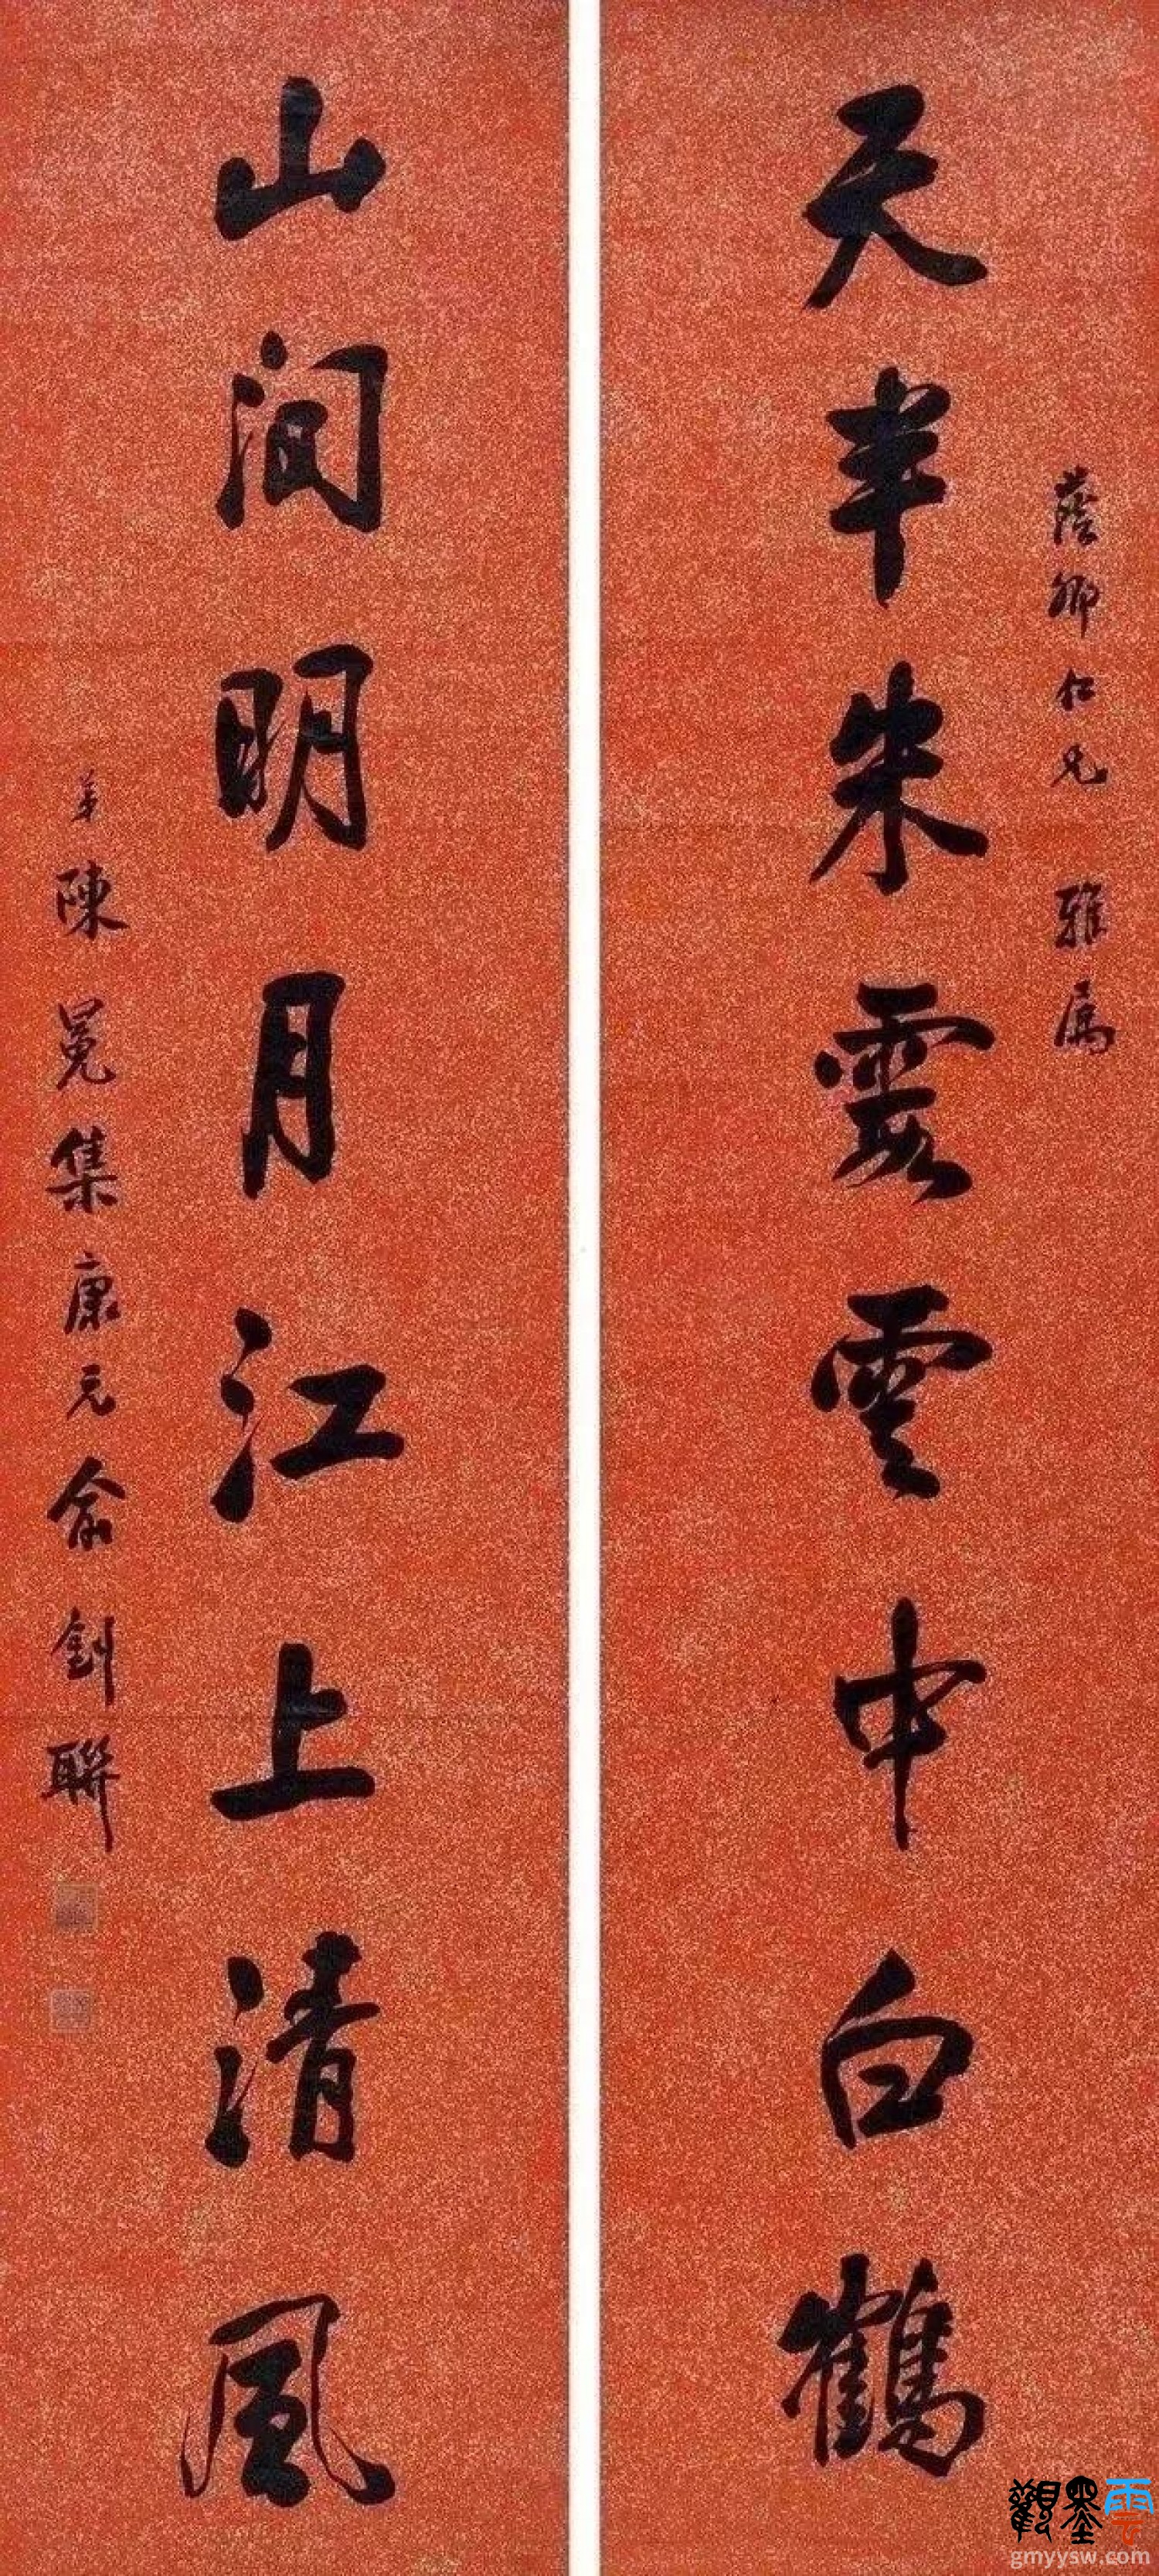 蔭卿仁兄 雅属
天半朱霞雲中白鶴
山間明月江上清風
弟陳冕集康元俞釗聯
觀墨雲
gmyysw.com